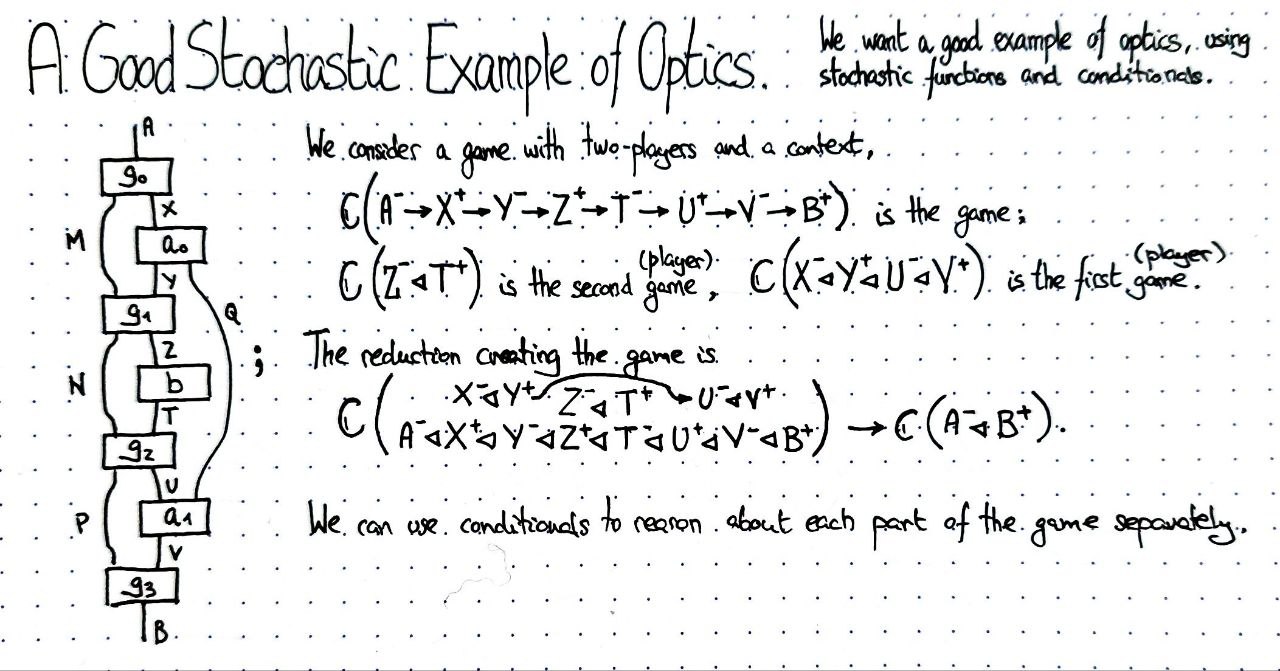 A Good Stochastic Example of Optics.
We want a good example of optics, using
stochastic functions and conditionals.
We consider a game with two-players and a context,
ℂ(A⁻→X⁺→Y⁻→Z⁺→T⁻→U⁺→V⁻→B⁺) is the game;
ℂ(Z⁻◁T⁺) is the second (player) game, ℂ(X⁻◁Y⁺◁U⁻◁V⁺) is the first (player) game.
The reduction creating the game is
ℂ( X⁻◁Y⁺ Z⁻◁T⁺ → U⁻◁V⁺
A⁻◁X⁺◁Y⁻◁Z⁺◁T⁻◁U⁺◁V⁻◁B⁺) → ℂ(A⁻◁B⁺).
We can use conditionals to reason about each part of the game separately.
A
g₀
X
M
a₀
Y
g₁
Q
Z
;
N
b
T
g₂
U
P
a₁
V
g₃
B